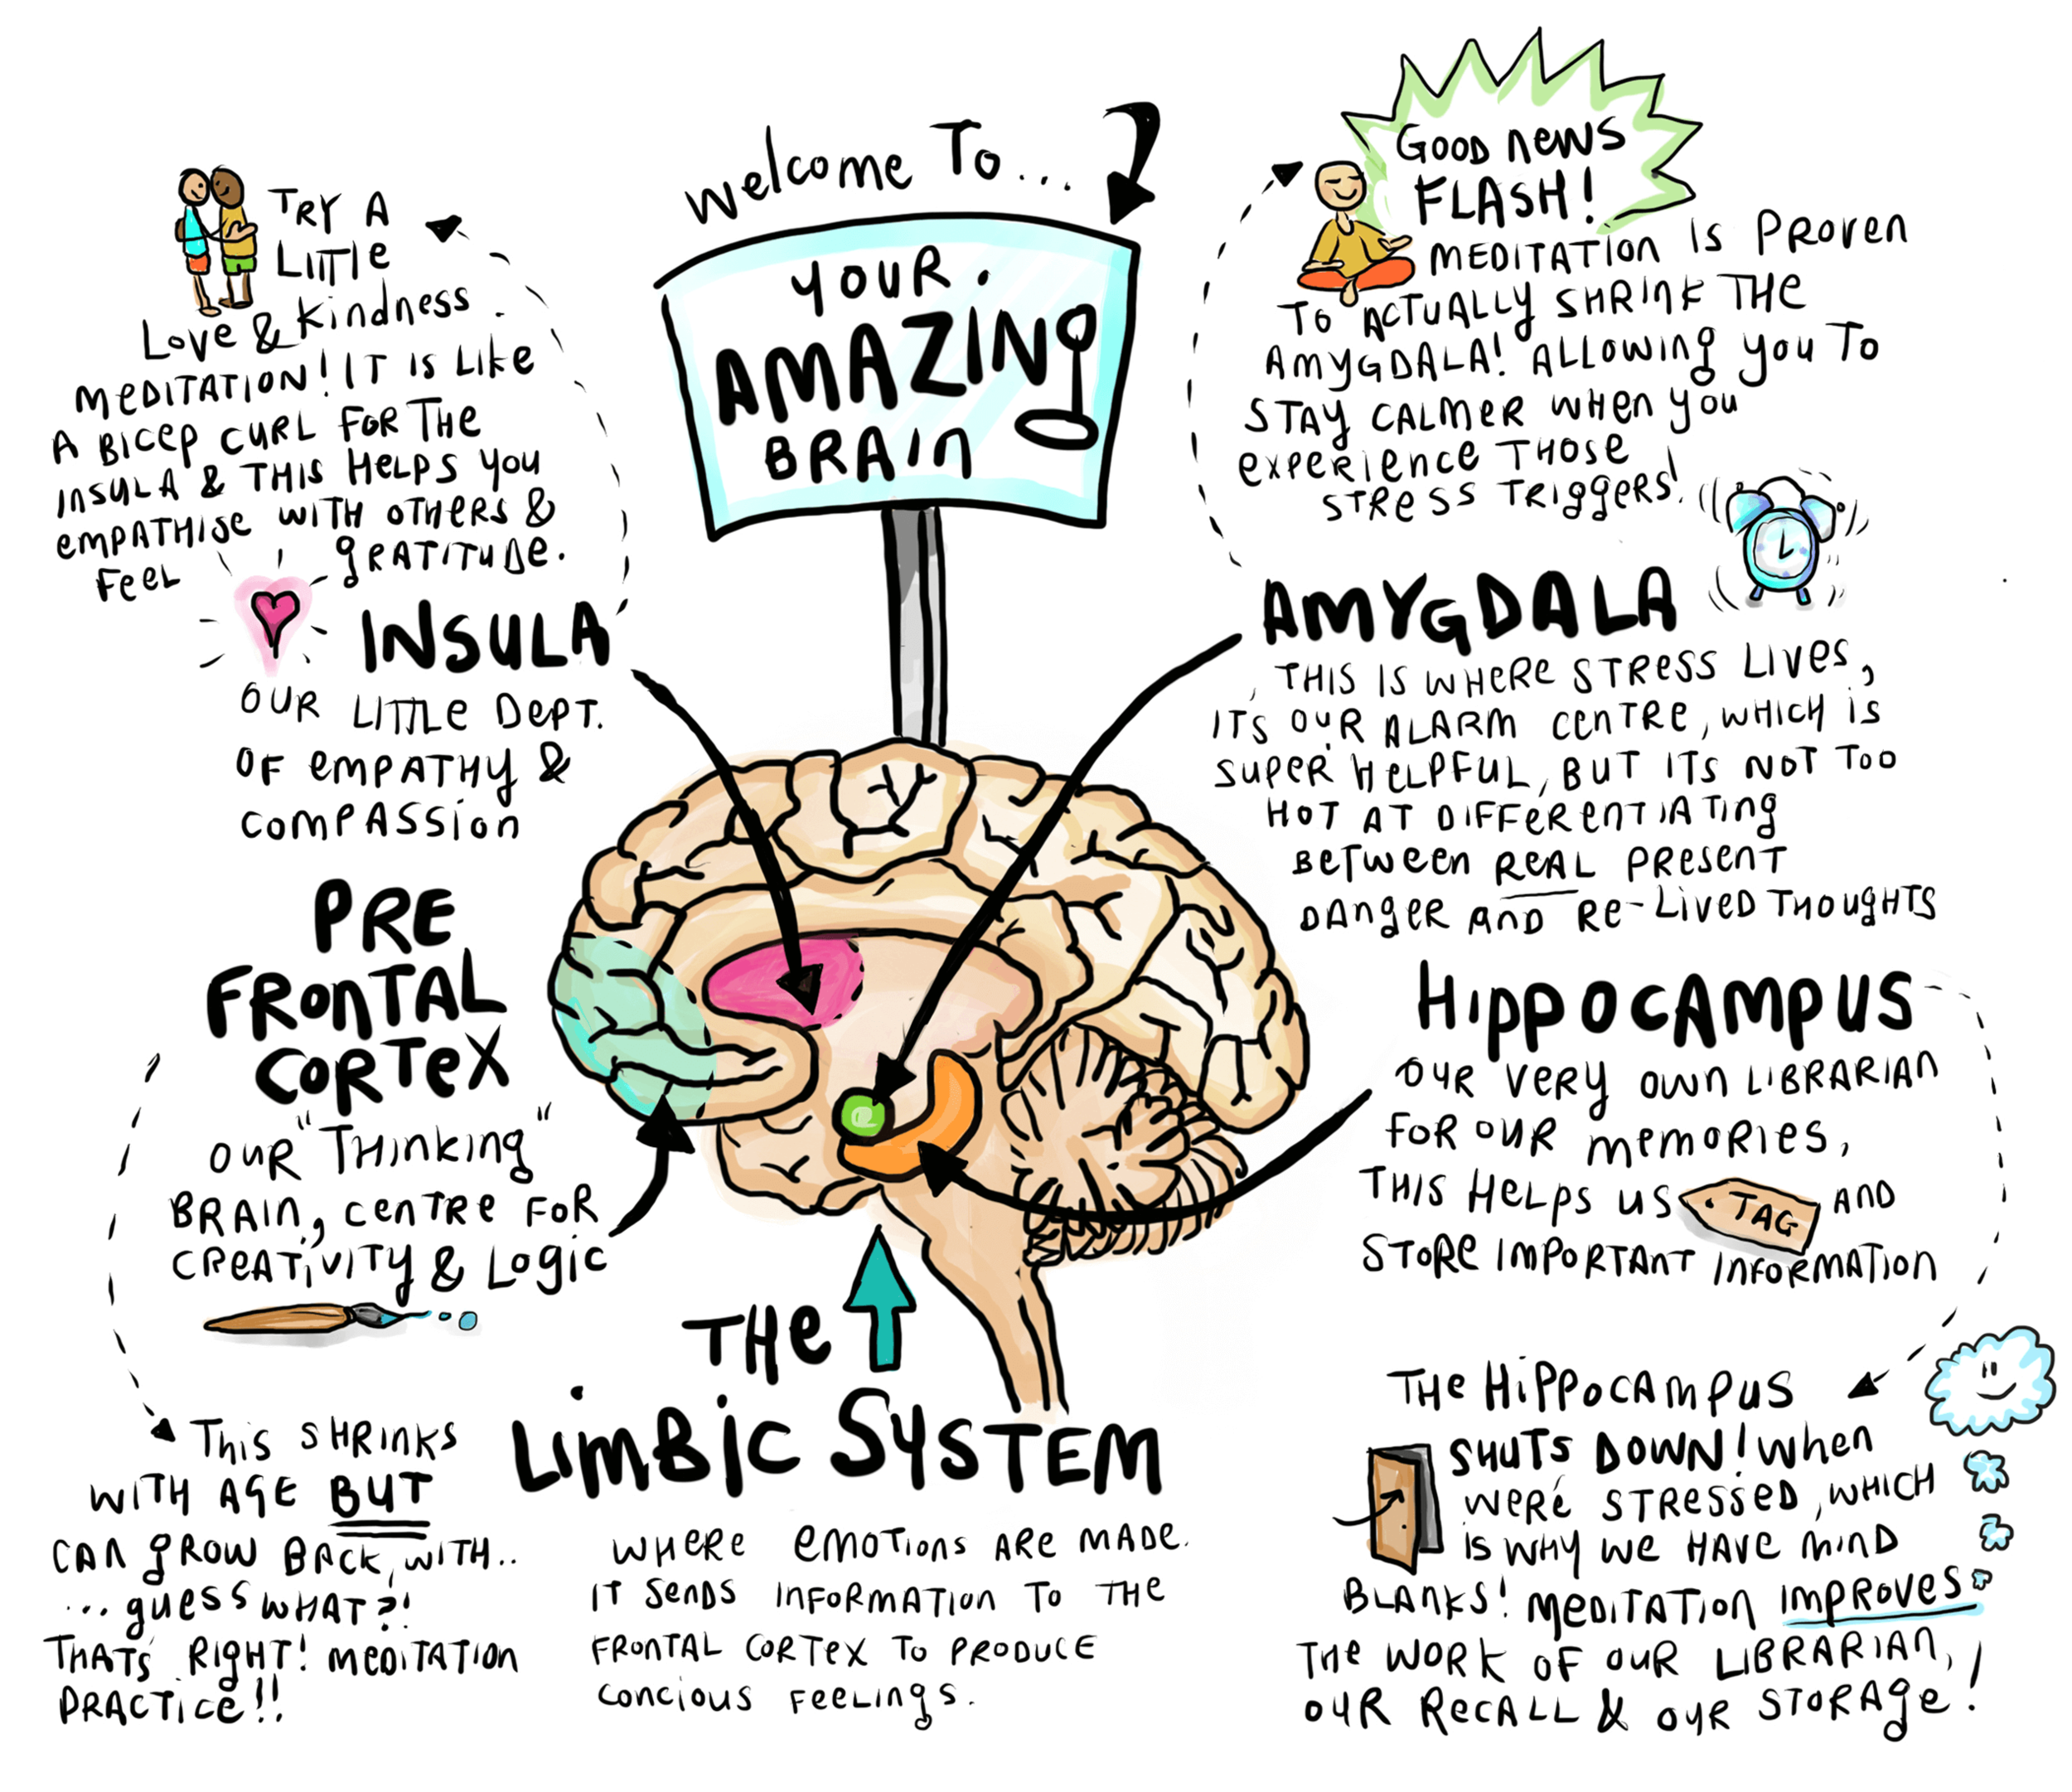 Welcome To...
YOUR
AMAZING
BRAIN
TRY A
LITTLE
Love & Kindness
MEDITATION! IT IS LIKE
A BICEP CURL FOR THE
INSULA & THIS HELPS YOU
EMPATHISE WITH OTHERS &
FEEL GRATITUDE.
INSULA
OUR LITTLE DEPT.
OF EMPATHY &
COMPASSION
PRE
FRONTAL
CORTEX
OUR "THINKING"
BRAIN, CENTRE FOR
CREATIVITY & LOGIC
THIS SHRINKS
WITH AGE BUT
CAN GROW BACK, WITH..
...GUESS WHAT?!
THATS RIGHT! MEDITATION
PRACTICE!!
THE
LIMBIC SYSTEM
WHERE EMOTIONS ARE MADE.
IT SENDS INFORMATION TO THE
FRONTAL CORTEX TO PRODUCE
CONCIOUS FEELINGS.
GOOD NEWS
FLASH!
MEDITATION IS PROVEN
TO ACTUALLY SHRINK THE
AMYGDALA! ALLOWING YOU TO
STAY CALMER WHEN YOU
EXPERIENCE THOSE
STRESS TRIGGERS!
AMYGDALA
THIS IS WHERE STRESS LIVES,
IT'S OUR ALARM CENTRE, WHICH IS
SUPER HELPFUL, BUT ITS NOT TOO
HOT AT DIFFERENTIATING
BETWEEN REAL PRESENT
DANGER AND RE-LIVED THOUGHTS
HIPPOCAMPUS
OUR VERY OWN LIBRARIAN
FOR OUR MEMORIES,
THIS HELPS US TAG AND
STORE IMPORTANT INFORMATION
THE HIPPOCAMPUS
SHUTS DOWN! WHEN
WE'RE STRESSED, WHICH
IS WHY WE HAVE MIND
BLANKS! MEDITATION IMPROVES
THE WORK OF OUR LIBRARIAN,
OUR RECALL & OUR STORAGE!